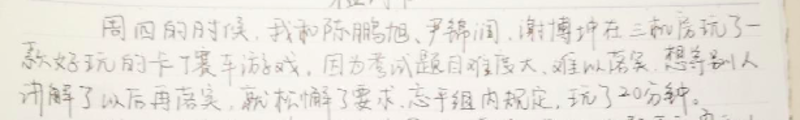 周四的时候，我和陈鹏旭、尹锦润、谢博坤在三机房玩了一
款好玩的卡丁赛车游戏，因为考试题目难度大、难以落实，想等别人
讲解了以后再落实，就松懈了要求，忘乎组内规定，玩了20分钟。